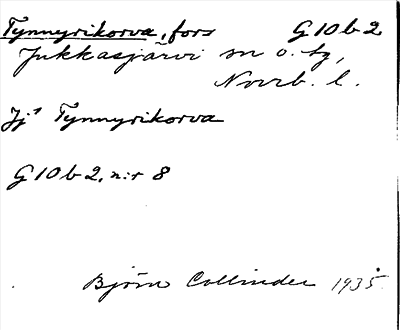 Tynnyrikorva, fors G10b2
Jukkasjärvi sn o. tg,
Norrb. l.
Jjs Tynnyrikorva
G10b2, n:r 8
Björn Collinder 1935.